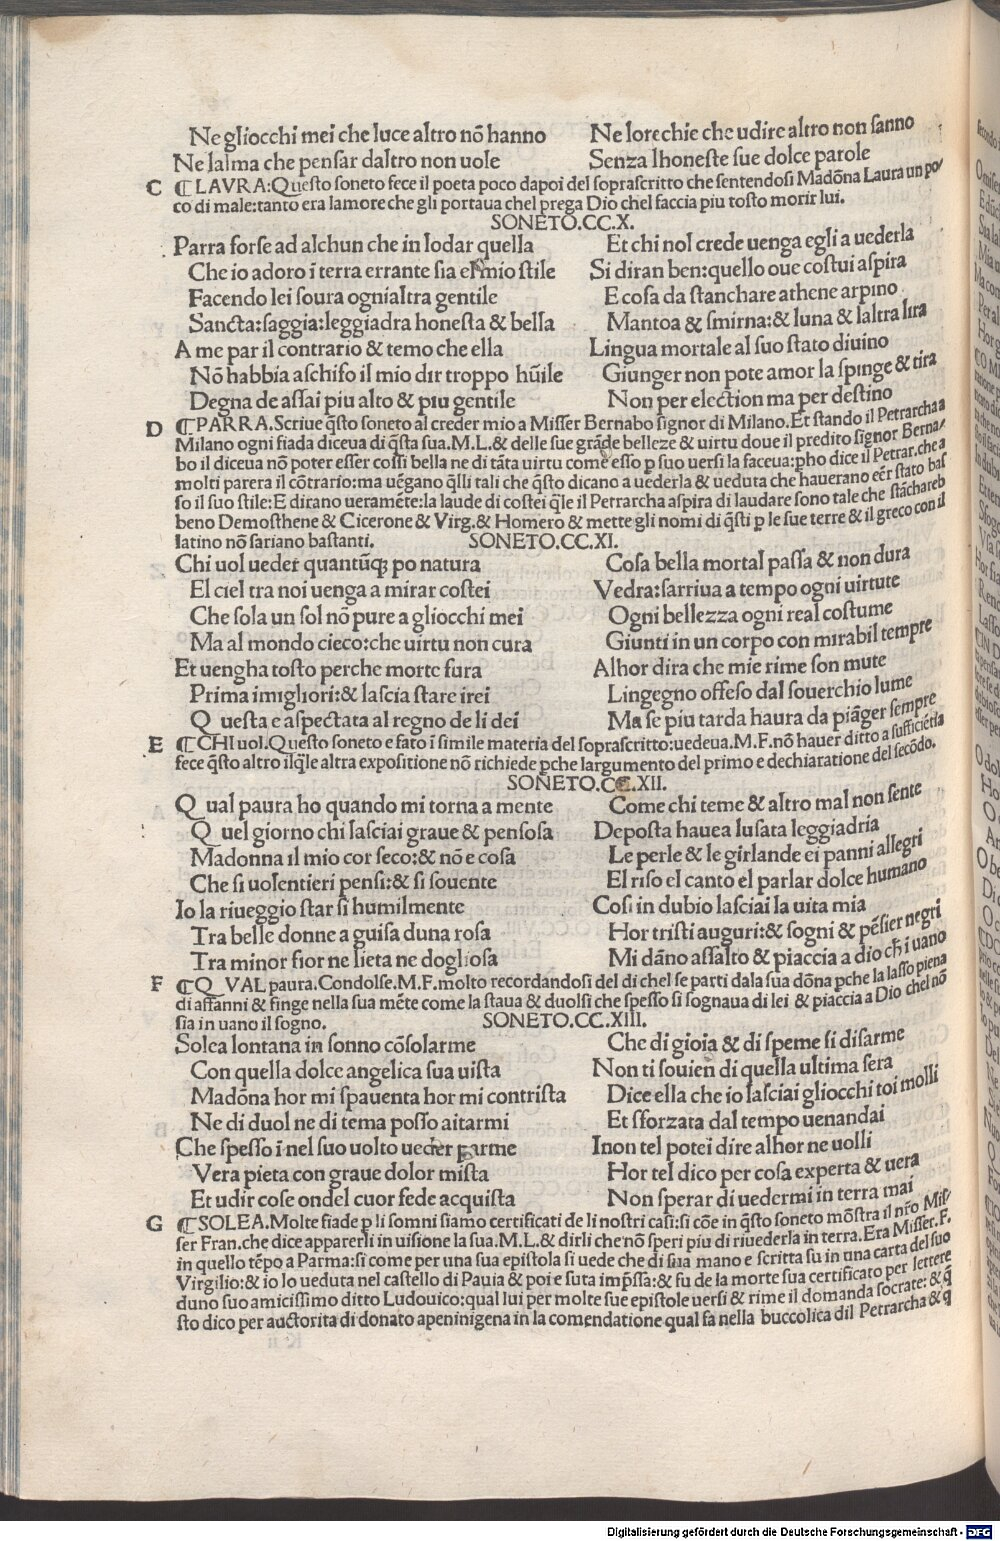 Ne gliocchi mei che luce altro nō hanno
Ne lalma che pensar daltro non uole
Ne lorechie che udire altro non sanno
Senza lhoneste sue dolce parole
C ¶ LAVRA:Questo soneto fece il poeta poco dapoi del soprascritto che sentendosi Madōna Laura un po/
co di male:tanto era lamore che gli portaua chel prega Dio chel faccia piu tosto morir lui.
SONETO.CC.X.
Parra forse ad alchun che in lodar quella
Che io adoro ī terra errante sia el mio stile
Facendo lei soura ognialtra gentile
Sancta:saggia:leggiadra honesta & bella
A me par il contrario & temo che ella
Nō habbia aschifo il mio dir troppo hūile
Degna de assai piu alto & piu gentile
Et chi nol crede uenga egli a uederla
Si diran ben:quello oue costui aspira
E cosa da stanchare athene arpino
Mantoa & smirna:& luna & laltra lira
Lingua mortale al suo stato diuino
Giunger non pote amor la spinge & tira
Non per election ma per destino
D ¶ PARRA.Scriue q̄sto soneto al creder mio a Misser Bernabo signor di Milano.Et stando il Petrarcha a
Milano ogni fiada diceua di q̄sta sua.M.L.& delle sue grāde belleze & uirtu doue il predito signor Berna/
bo il diceua nō poter esser cossi bella ne di tāta uirtu come esso p suo uersi la faceua:pho dice il Petrar.che a
molti parera il cōtrario:ma uēgano q̄lli tali che q̄sto dicano a uederla & ueduta che hauerano eēr stato bas
so il suo stile:E dirano ueramēte:la laude di costei q̄le il Perrarcha aspira di laudare sono tale che stāchareb
beno Demosthene & Cicerone & Virg.& Homero & mette gli nomi di q̄sti p le sue terre & il greco con il
latino nō sariano bastanti.
SONETO.CC.XI.
Chi uol ueder quantūq; po natura
El ciel tra noi uenga a mirar costei
Che sola un sol nō pure a gliocchi mei
Ma al mondo cieco:che uirtu non cura
Et uengha tosto perche morte fura
Prima imigliori:& lascia stare irei
Q uesta e aspectata al regno de li dei
Cosa bella mortal passa & non dura
Vedra:sarriua a tempo ogni uirtute
Ogni bellezza ogni real costume
Giunti in un corpo con mirabil tempre
Alhor dira che mie rime son mute
Lingegno offeso dal souerchio lume
Ma se piu tarda haura da piāger sempre
E ¶ CHI uol.Questo soneto e fato ī simile materia del soprascritto:uedeua.M.F.nō hauer ditto a sufficiētia
fece q̄sto altro ilq̄le altra expositione nō richiede pche largumento del primo e dechiaratione del secōdo.
SONETO.CC.XII.
Q ual paura ho quando mi torna a mente
Q uel giorno chi lasciai graue & pensosa
Madonna il mio cor seco:& nō e cosa
Che si uolentieri pensi:& si souente
Io la riueggio star si humilmente
Tra belle donne a guisa duna rosa
Tra minor fior ne lieta ne dogliosa
Come chi teme & altro mal non sente
Deposta hauea lusata leggiadria
Le perle & le girlande ei panni allegri
El riso el canto el parlar dolce humano
Cosi in dubio lasciai la uita mia
Hor tristi auguri:& sogni & pēsier negri
Mi dāno assalto & piaccia a dio ch̄ i uano
F ¶ Q_VAL paura.Condolse.M.F.molto recordandosi del di chel se parti dala sua dōna pche la lasso piena
di affanni & finge nella sua mēte come la staua & duolsi che spesso si sognaua di lei & piaccia a Dio chel nō
sia in uano il sogno.
SONETO.CC.XIII.
Solea lontana in sonno cōsolarme
Con quella dolce angelica sua uista
Madōna hor mi spauenta hor mi contrista
Ne di duol ne di tema posso aitarmi
Che spesso ī nel suo uolto ueder parme
Vera pieta con graue dolor mista
Et udir cose ondel cuor fede acquista
Che di gioia & di speme si disarme
Non ti souien di quella ultima sera
Dice ella che io lasciai gliocchi toi molli
Et sforzata dal tempo uenandai
Inon tel potei dire alhor ne uolli
Hor tel dico per cosa experta & uera
Non sperar di uedermi in terra mai
G ¶ SOLEA.Molte fiade p li somni siamo certificati de li nostri casi:si cōe in q̄sto soneto mōstra il nr̄o Mis/
ser Fran.che dice apparerli in uisione la sua.M.L.& dirli che nō speri piu di riuederla in terra.Era Misser.F.
in quello tēpo a Parma:si come per una sua epistola si uede che di sua mano e scritta su in una carta del suo
Virgilio:& io lo ueduta nel castello di Pauia & poi e suta imp̄ssa:& fu de la morte sua certificato per lettere
duno suo amicissimo ditto Ludouico:qual lui per molte sue epistole uersi & rime il domanda socrate:& q̄
sto dico per auctorita di donato apeninigena in la comendatione qual fa nella buccolica dil Petrarcha & q
Digitalisierung gefördert durch die Deutsche Forschungsgemeinschaft - DFG